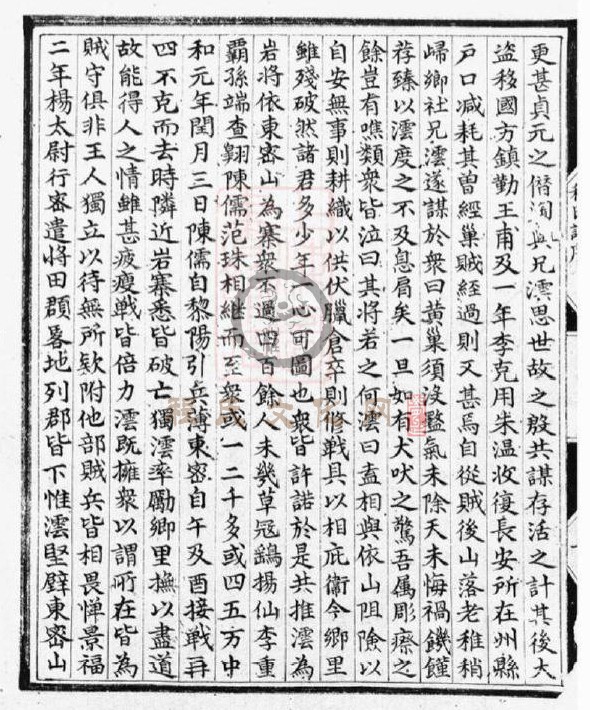 更甚貞元之僭洶與兄澐思世故之殷共謀存活之計其後大
盗移國方鎮勤王甫及一年李克用朱温收復長安所在州縣
戶口减耗其曾經巢賊經過則又甚焉自從賊後山落老稚稍
歸鄉社兄澐遂謀於衆曰黄巢須没盬氣未除天未悔禍饑饉
荐臻以澐度之不及息肩矣一旦如有犬吠之驚吾属彫瘵之
餘豈有噍類衆皆泣曰其將若之何澐曰盍相與依山阻險以
自安無事則耕織以供伏臘倉卒則修戰具以相庇衛今鄉里
雖殘破然諸君多少年一心可圖也衆皆許諾於是共推澐為
岩將依東密山為寨衆不過四百餘人未幾草冦鷂揚仙李重
霸孫端查翺陳儒范珠相継而至衆或一二千多或四五万中
和元年閏月三日陳儒自黎陽引兵薄東密自午及酉接戰再
四不克而去時隣近岩寨悉皆破亡獨澐率勵鄉里撫以盡道
故能得人之情雖甚疲瘦戰皆倍力澐既擁衆以謂所在皆為
賊守俱非王人獨立以待無所欵附他部賊兵皆相畏憚景福
二年楊太尉行密遣將田頵畧地列郡皆下惟澐堅壁東密山
程氏文化网